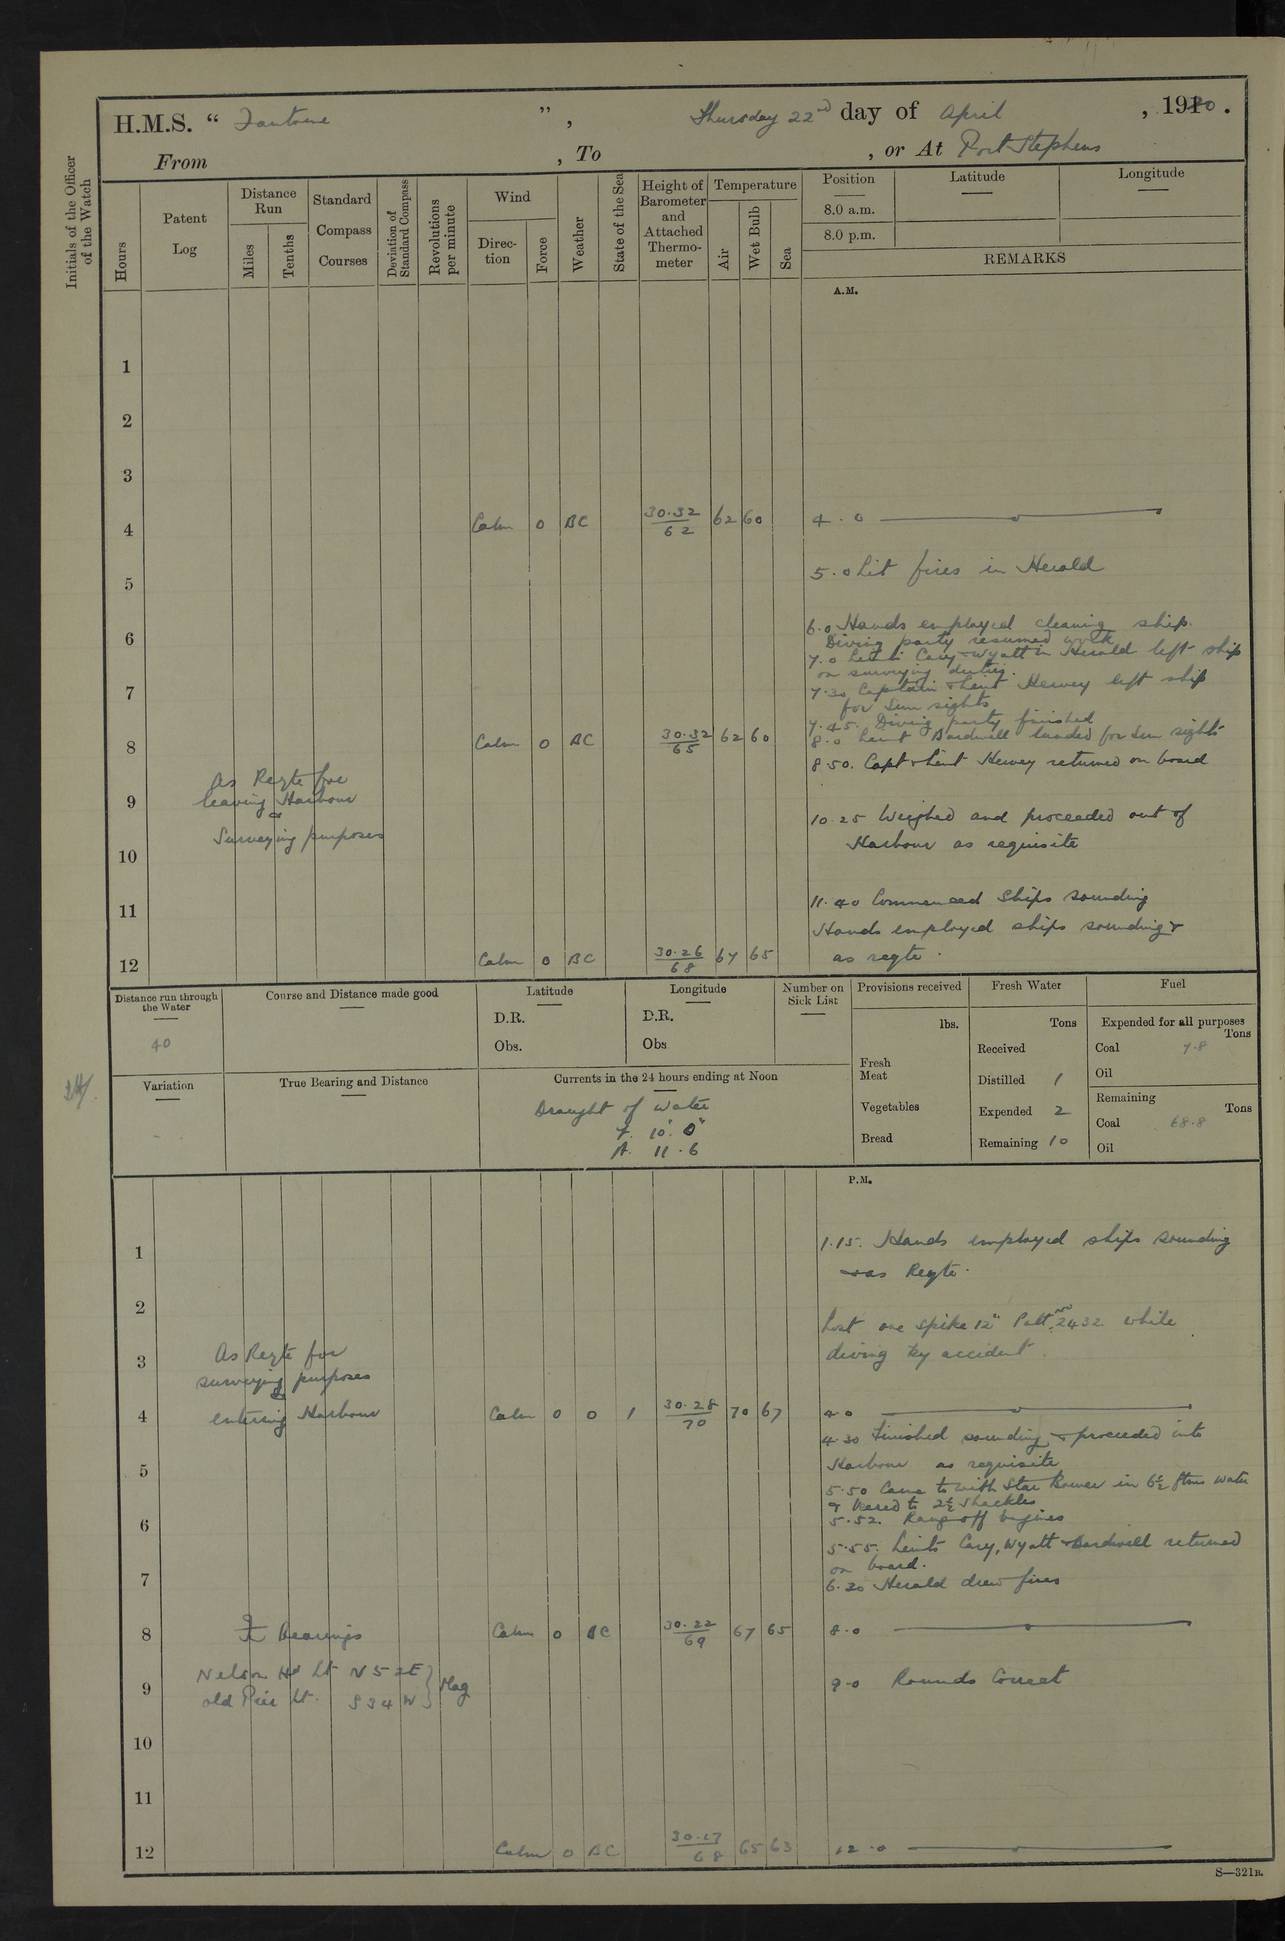 H.M.S. “ Fantome ”, Thursday 22nd day of April , 1920 .
From , To , or At Port Stephens
Initials of the Officer of the Watch
Hours
Patent Log
Distance Run
Miles
Tenths
Standard Compass Courses
Deviation of Standard Compass
Revolutions per minute
Wind
Direction
Force
Weather
State of the Sea
Height of Barometer and Attached Thermometer
Temperature
Air
Wet Bulb
Sea
Position
8.0 a.m.
8.0 p.m.
Latitude
Longitude
REMARKS
A.M.
1
2
3
4 Calm 0 BC 30.32/62 62 60 4.0
5 5.0 Lit fires in Herald
6 6.0 Hands employed cleaning ship.
Diving party resumed work
7.0 Lieuts Cary & Wyatt in Herald left ship
on surveying duties.
7 7.30 Captain & Lieut Hewey left ship
for Sun sights
7.45. Diving party finished
8 Calm 0 BC 30.32/65 62 60 8.0 Lieut Bardwell landed for Sun sights
8.50. Capt & Lieut Hewey returned on board
As Reqte for
9 leaving Harbour
&
Surveying purposes
10.25 Weighed and proceeded out of
10 Harbour as requisite
11 11.40 Commenced Ships sounding
Hands employed ships sounding &
12 Calm 0 BC 30.26/68 67 65 as reqte.
Distance run through the Water
40
Course and Distance made good
Latitude
D.R.
Obs.
Longitude
D.R.
Obs
Number on Sick List
Provisions received
lbs.
Fresh Meat
Vegetables
Bread
Fresh Water
Tons
Received
Distilled 1
Expended 2
Remaining 10
Fuel
Expended for all purposes
Tons
Coal 7.8
Oil
Remaining
Tons
Coal 68.8
Oil
Variation
True Bearing and Distance
Currents in the 24 hours ending at Noon
Draught of Water
F. 10'. 0"
A. 11.6
P.M.
1 1.15. Hands employed ships sounding
& as Reqte.
2 Lost one spike 12" Patt. No 2432 while
3 diving by accident.
As Reqte for
surveying purposes
&
4 entering Harbour Calm 0 0 1 30.28/70 70 67 4.0
4.30 Finished sounding & proceeded into
5 Harbour as requisite
5.50 Came to with Star Bower in 6½ ftms water
& veered to 2½ shackles
6 5.52. Rang off Engines
5.55. Lieuts Cary, Wyatt & Bardwell returned
on board.
7 6.20 Herald drew fires
8 Bearings Calm 0 BC 30.22/69 67 65 8.0
Nelson Hd Lt N 52 E } Mag
9 old Pier Lt. S 34 W 9.0 Rounds Correct
10
11
12 Calm 0 BC 30.17/68 65 63 12.0
S—321B.